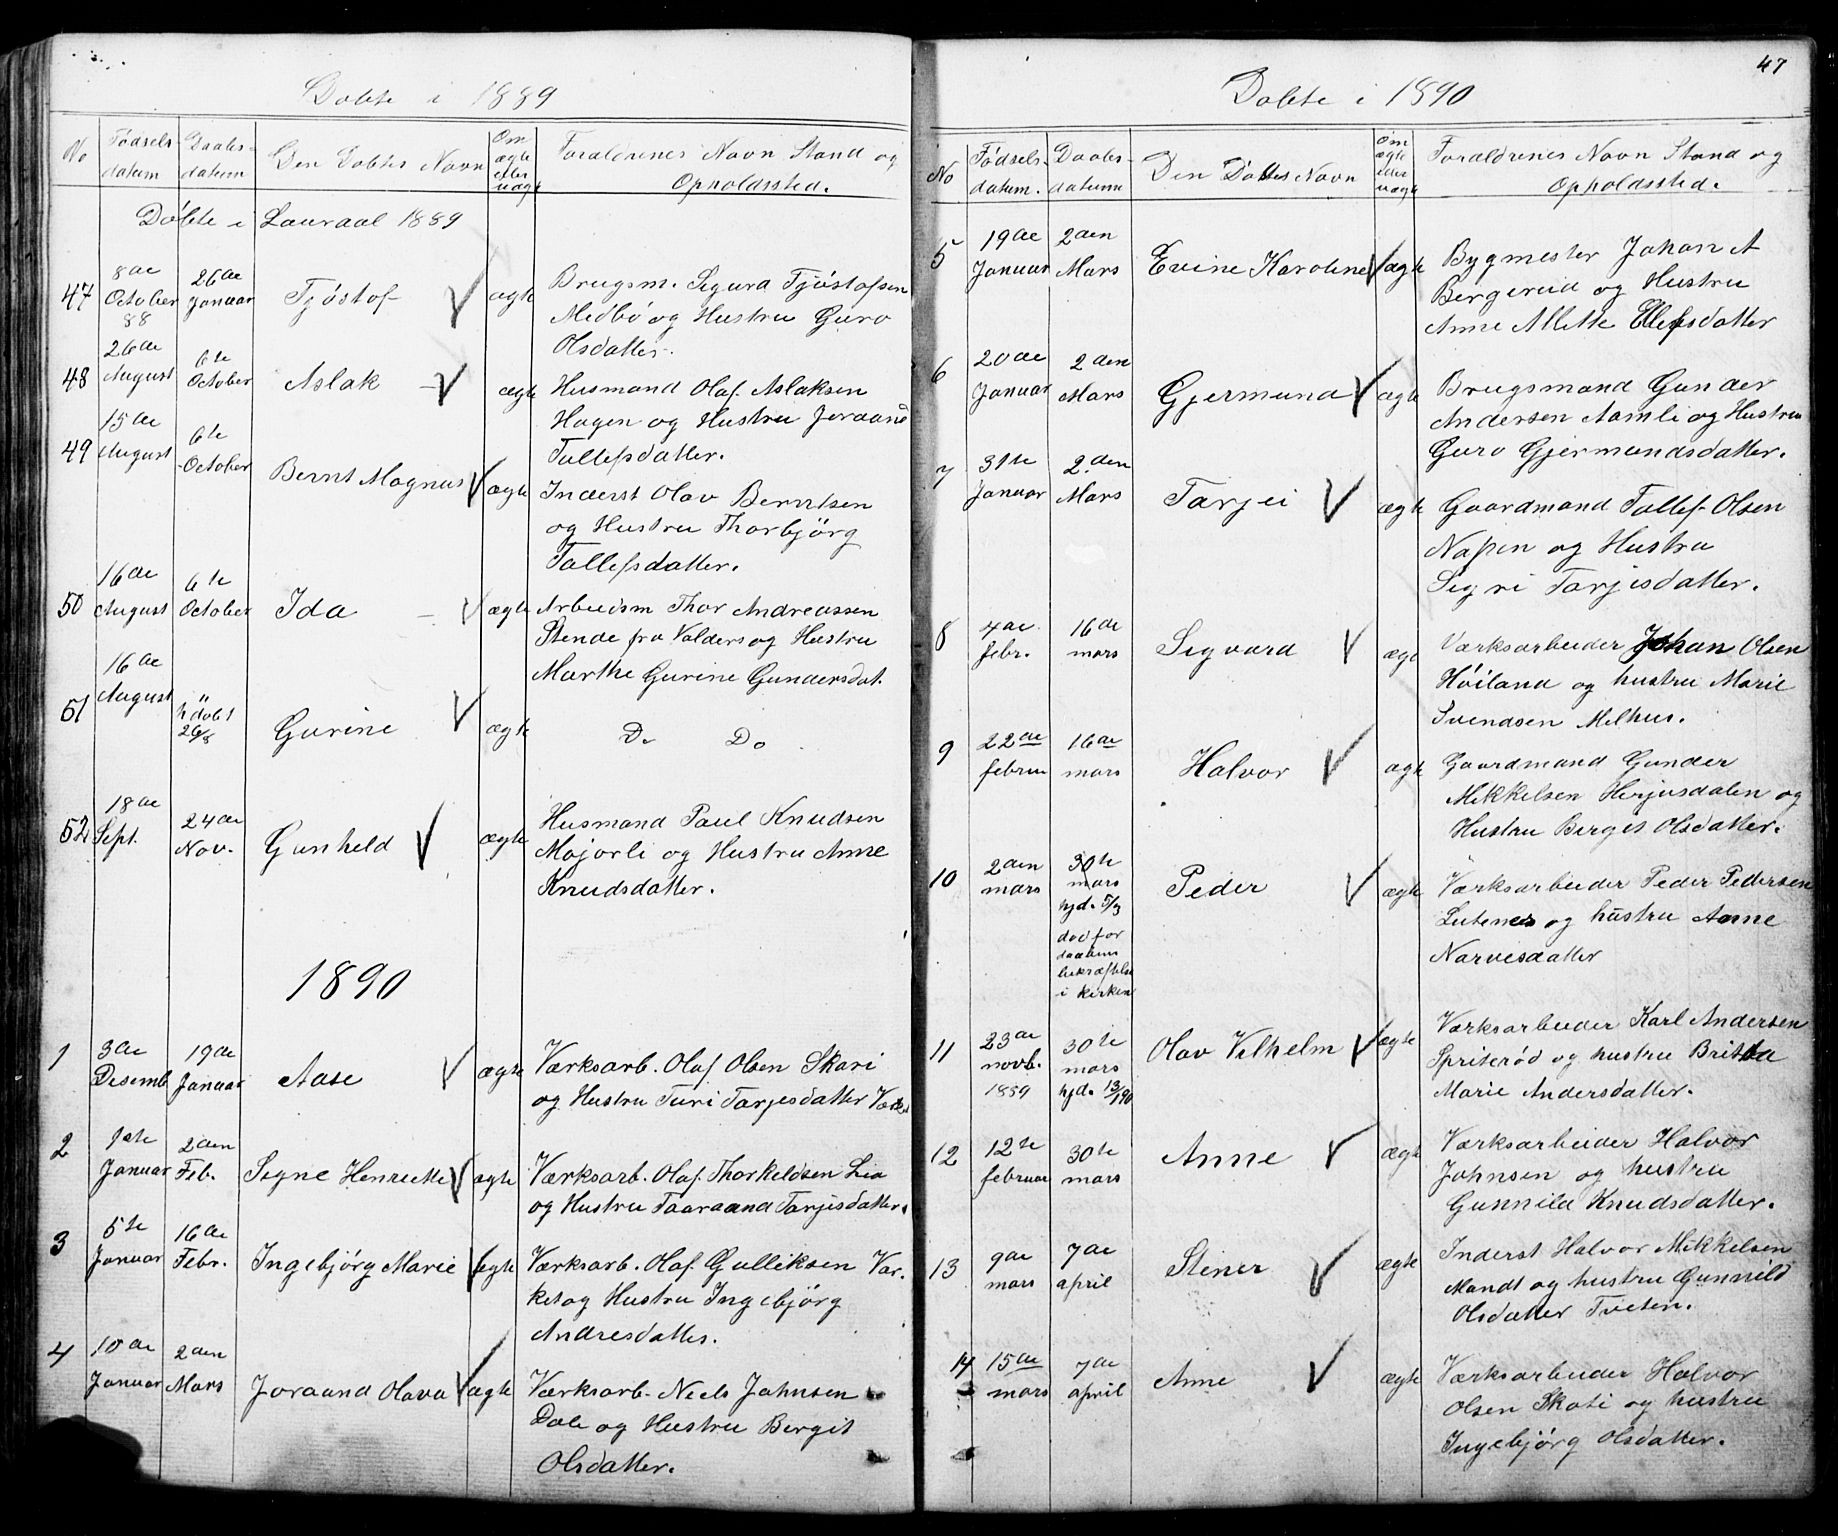 Døbte i 1889
No
Fødsels datum
Daabs- datum
Den Døbtes Navn
Om ægte eller uægt
Forældrenes Navn Stand og Opholdssted.
Døbte i Lauraal 1889
47 8de October 88 26de Januar Tjøstof ægte Brugsm. Sigurd Tjøstofsen
Medbø og Hustru Guro
Olsdatter.
48 26de August 6te October Aslak ægte Husmand Olaf Aslaksen
Hagen og Hustru Joraand
Tallefsdatter.
49 15de August 6te October Bernt Magnus ægte Inderst Olav Berntsen
og Hustru Thorbjørg
Tallefsdatter.
50 16de August 6te October Ida ægte Arbeidsm Thor Andreassen
Stende fra Valders og Hustru
Marthe Gurine Gundersdat.
51 16de August " hdøbt 26/8 Gurine ægte Do Do
52 18de Sept. 24de Nov. Gunhild ægte Husmand Paul Knudsen
Mojorli og Hustru Anne
Knudsdatter.
1890
1 3de Desemb 19de Januar Aase ægte Værksarb. Olaf Olsen Skari
og Hustru Turi Tarjesdatter
2 1ste Januar 2den Feb. Signe Henriette ægte Værksarb. Olaf Thorkeldsen Lia
og Hustru Taaraand Tarjisdatter.
3 5te Januar 16de Febr. Ingebjørg Marie ægte Værksarb. Olaf Gulliksen Vær-
ket og Hustru Ingebjørg
Andresdatter.
4 10de Januar 2den Mars Joraand Olava ægte Værksarb. Neels Johnsen
Dale og Hustru Bergit
Olsdatter.
47
Døbte i 1890
No
Fødsels- datum.
Daabs- datum
Den Døbtes Navn
Om ægte eller uægte
Forældrenes Navn Stand og Opholdssted.
5 19de Januar 2den Mars Evine Karoline ægte Bygmester Johan A
Bergereid og Hustru
Anne Mette Ellefsdatter
6 20de Januar 2den Mars Gjermund ægte Brugsmand Gunder
Andersen Aamli og Hustru
Guro Gjermundsdatter.
7 31te Januar 2den Mars Tarjei ægte Gaardmand Tallef Olsen
Napen og Hustru
Sigri Tarjisdatter.
8 4de febr. 16de mars Sigvard ægte Værksarbeider Johan Olsen
Høiland og hustru Marie
Svendsen Melhus.
9 22de februa 16de mars Halvor ægte Gaardmand Gunder
Mikkelsen Herjusdalen og
Hustru Berget Olsdatter.
10 2den mars 30te mars hjd. 5/3 død før daabens bekræftelse i kirken Peder ægte Værksarbeider Peder Pedersen
Lutenes og hustru Anne
Narvesdatter
11 23de novb. 1889 30te mars hjd. 13/1 90 Olav Vilhelm ægte Værksarbeider Karl Andersen
Spriterød og hustru Britta
Marie Andersdatter.
12 12te februar 30te mars Anne ægte Værksarbeider Halvor
Johnsen og hustru
Gunnild Knudsdatter.
13 9de mars 7de april Stener ægte Inderst Halvor Mikkelsen
Mandt og hustru Gunnild
Olsdatter Tveten.
14 15de mars 7de april Anne ægte Værksarbeider Halvor
Olsen Skoti og hustru
Ingebjørg Olsdatter.